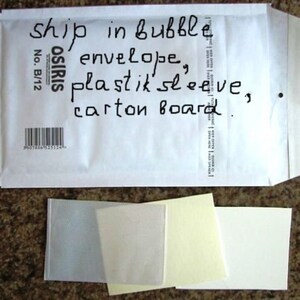 ship in bubble
envelope,
plastik sleeve,
carton board.
OSIRIS
No. B/12